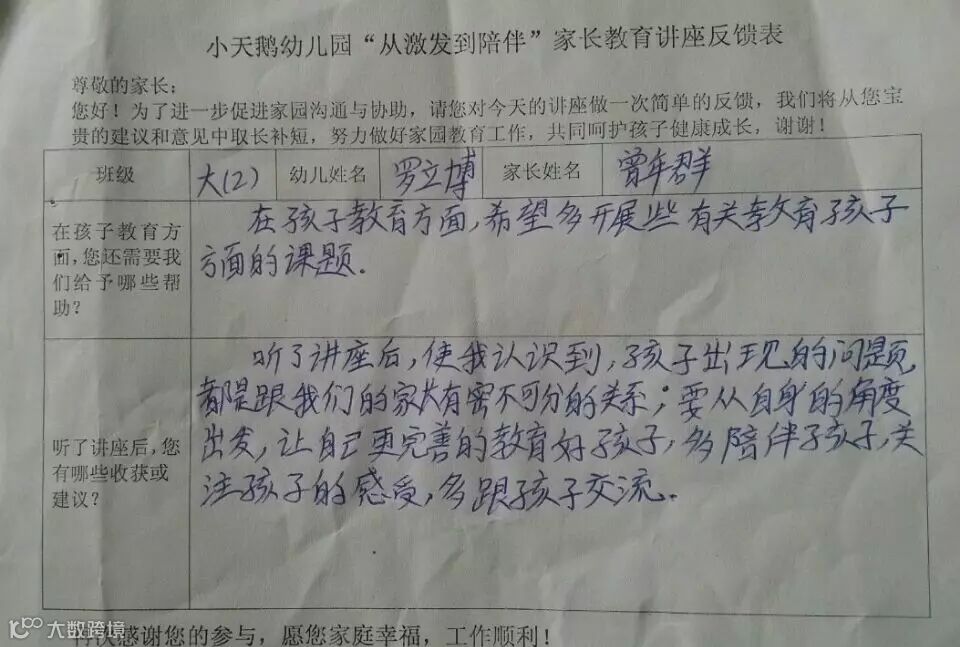 小天鹅幼儿园“从激发到陪伴”家长教育讲座反馈表
尊敬的家长：
您好！为了进一步促进家园沟通与协助，请您对今天的讲座做一次简单的反馈，我们将从您宝
贵的建议和意见中取长补短，努力做好家园教育工作，共同呵护孩子健康成长，谢谢！
班级 大(2) 幼儿姓名 罗立博 家长姓名 曾年群
在孩子教育方
面，您还需要我
们给予哪些帮
助？
在孩子教育方面，希望多开展些有关教育孩子
方面的课题.
听了讲座后，您
有哪些收获或
建议？
听了讲座后，使我认识到，孩子出现的问题，
都是跟我们的家长有密不可分的关系；要从自身的角度
出发，让自己更完善的教育好孩子，多陪伴孩子，关
注孩子的感受，多跟孩子交流.
再次感谢您的参与，愿您家庭幸福，工作顺利！
大数跨境